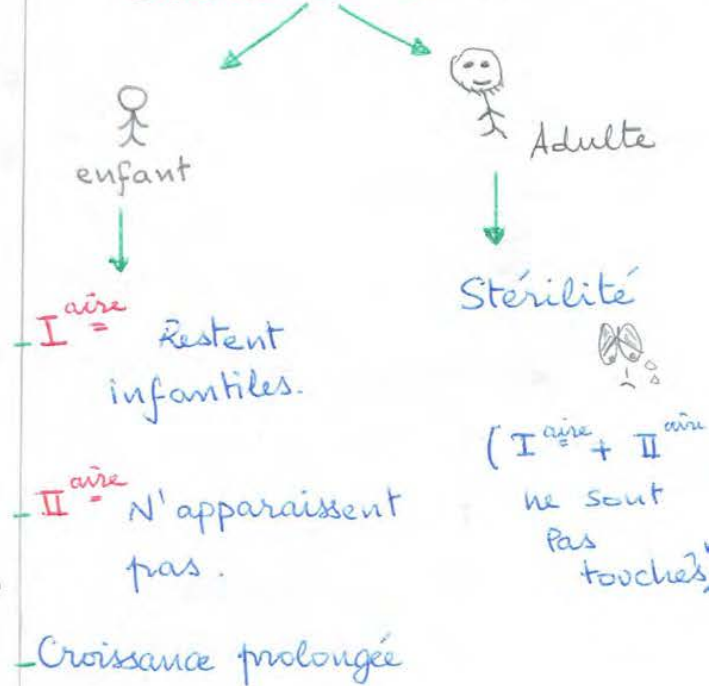 enfant
Adulte
- I aire Restent
infantiles.
- II aire N'apparaissent
pas.
- Croissance prolongée
Stérilité
(I aire + II aire
ne sont
Pas
touchés)